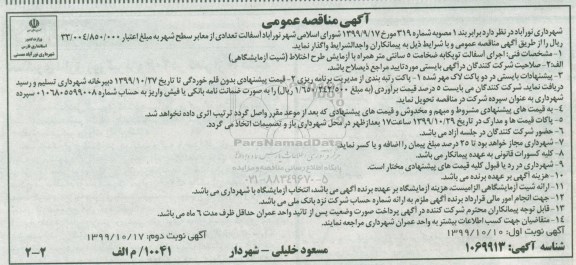 آگهی مناقصه عمومی
شهرداری نورآباد در نظر دارد برابر بند ۱ مصوبه شماره ۳۱۹ مورخ ۱۳۹۹/۹/۱۷ شورای اسلامی شهر نورآباد اسفالت تعدادی از معابر سطح شهر به مبلغ اعتبار ۳۳/۰۰۴/۸۵۰/۰۰۰
ریال را از طریق آگهی مناقصه عمومی و با شرایط ذیل به پیمانکاران واجدالشرایط واگذار نماید.
۱- مشخصات فنی: اجرای اسفالت توپکا به ضخامت ۵ سانتی متر همراه با آزمایش طرح اختلاط (شیت آزمایشگاهی)
الف ۲- صلاحیت شرکت کنندگان در آگهی بایستی مورد تایید مراجع ذیصلاح باشد.
۳- پیشنهادات بایستی در دو پاکت لاک مهر شده ۱- پاکت رتبه بندی از مدیریت برنامه ریزی ۲- قیمت پیشنهادی بدون قلم خوردگی تا تاریخ ۱۳۹۹/۱۰/۲۷ دبیرخانه شهرداری تسلیم و رسید
دریافت نماید. شرکت کنندگان می بایست ۵ درصد قیمت برآوردی (به مبلغ ۱/۶۵۰/۲۴۲/۵۰۰ ریال) را به صورت ضمانت نامه بانکی یا فیش واریز به حساب شماره ۰۱۰۶۸۰۵۵۹۹۰۰۸ سپرده
شهرداری به عنوان سپرده شرکت در مناقصه تحویل نماید.
۴- به قیمت های پیشنهادی مشروط و مبهم و مخدوش و قیمت های پیشنهادی که بعد از موعد مقرر واصل گردد ترتیب اثری داده نخواهد شد.
۵- پاکات قیمت ها و مدارک در تاریخ ۱۳۹۹/۱۰/۲۹ ساعت ۱۷ بعدازظهر در محل شهرداری باز و تصمیمات اتخاذ می گردد.
۶- حضور شرکت کنندگان در جلسه آزاد می باشد.
۷- شهرداری مجاز خواهد بود تا ۲۵ درصد مبلغ پیمان را اضافه و یا کسر نماید.
۸- کلیه کسورات قانونی به عهده پیمانکار می باشد.
۹- شهرداری در رد یا قبول کلیه قیمت های پیشنهادی مختار است.
۱۰- هزینه آگهی بر عهده برنده می باشد.
۱۱- ارائه شیت آزمایشگاهی الزامیست، هزینه آزمایشگاه بر عهده برنده آگهی می باشد، انتخاب آزمایشگاه با شهرداری می باشد.
۱۲- جهت انجام امور مالی قرارداد برنده آگهی ملزم به ارائه شماره حساب شرکت نزد بانک ملی می باشد.
۱۳- قابل توجه پیمانکاران محترم شرکت کننده در آگهی پرداخت صورت وضعیت پس از تائید واحد عمران حداقل ظرف مدت ۶ ماه می باشد.
۱۴- متقاضیان جهت کسب اطلاعات بیشتر به واحد عمران شهرداری مراجعه نمایند.
آگهی نوبت اول: ۱۳۹۹/۱۰/۱۰
آگهی نوبت دوم: ۱۳۹۹/۱۰/۱۷
شناسه آگهی: ۱۰۶۹۹۱۳
مسعود خلیلی - شهردار
۱۰۰۴۱/ م الف
۲-۲
ParsNamadData
۰۲۱-۸۸۳۴۹۶۷۰-۵